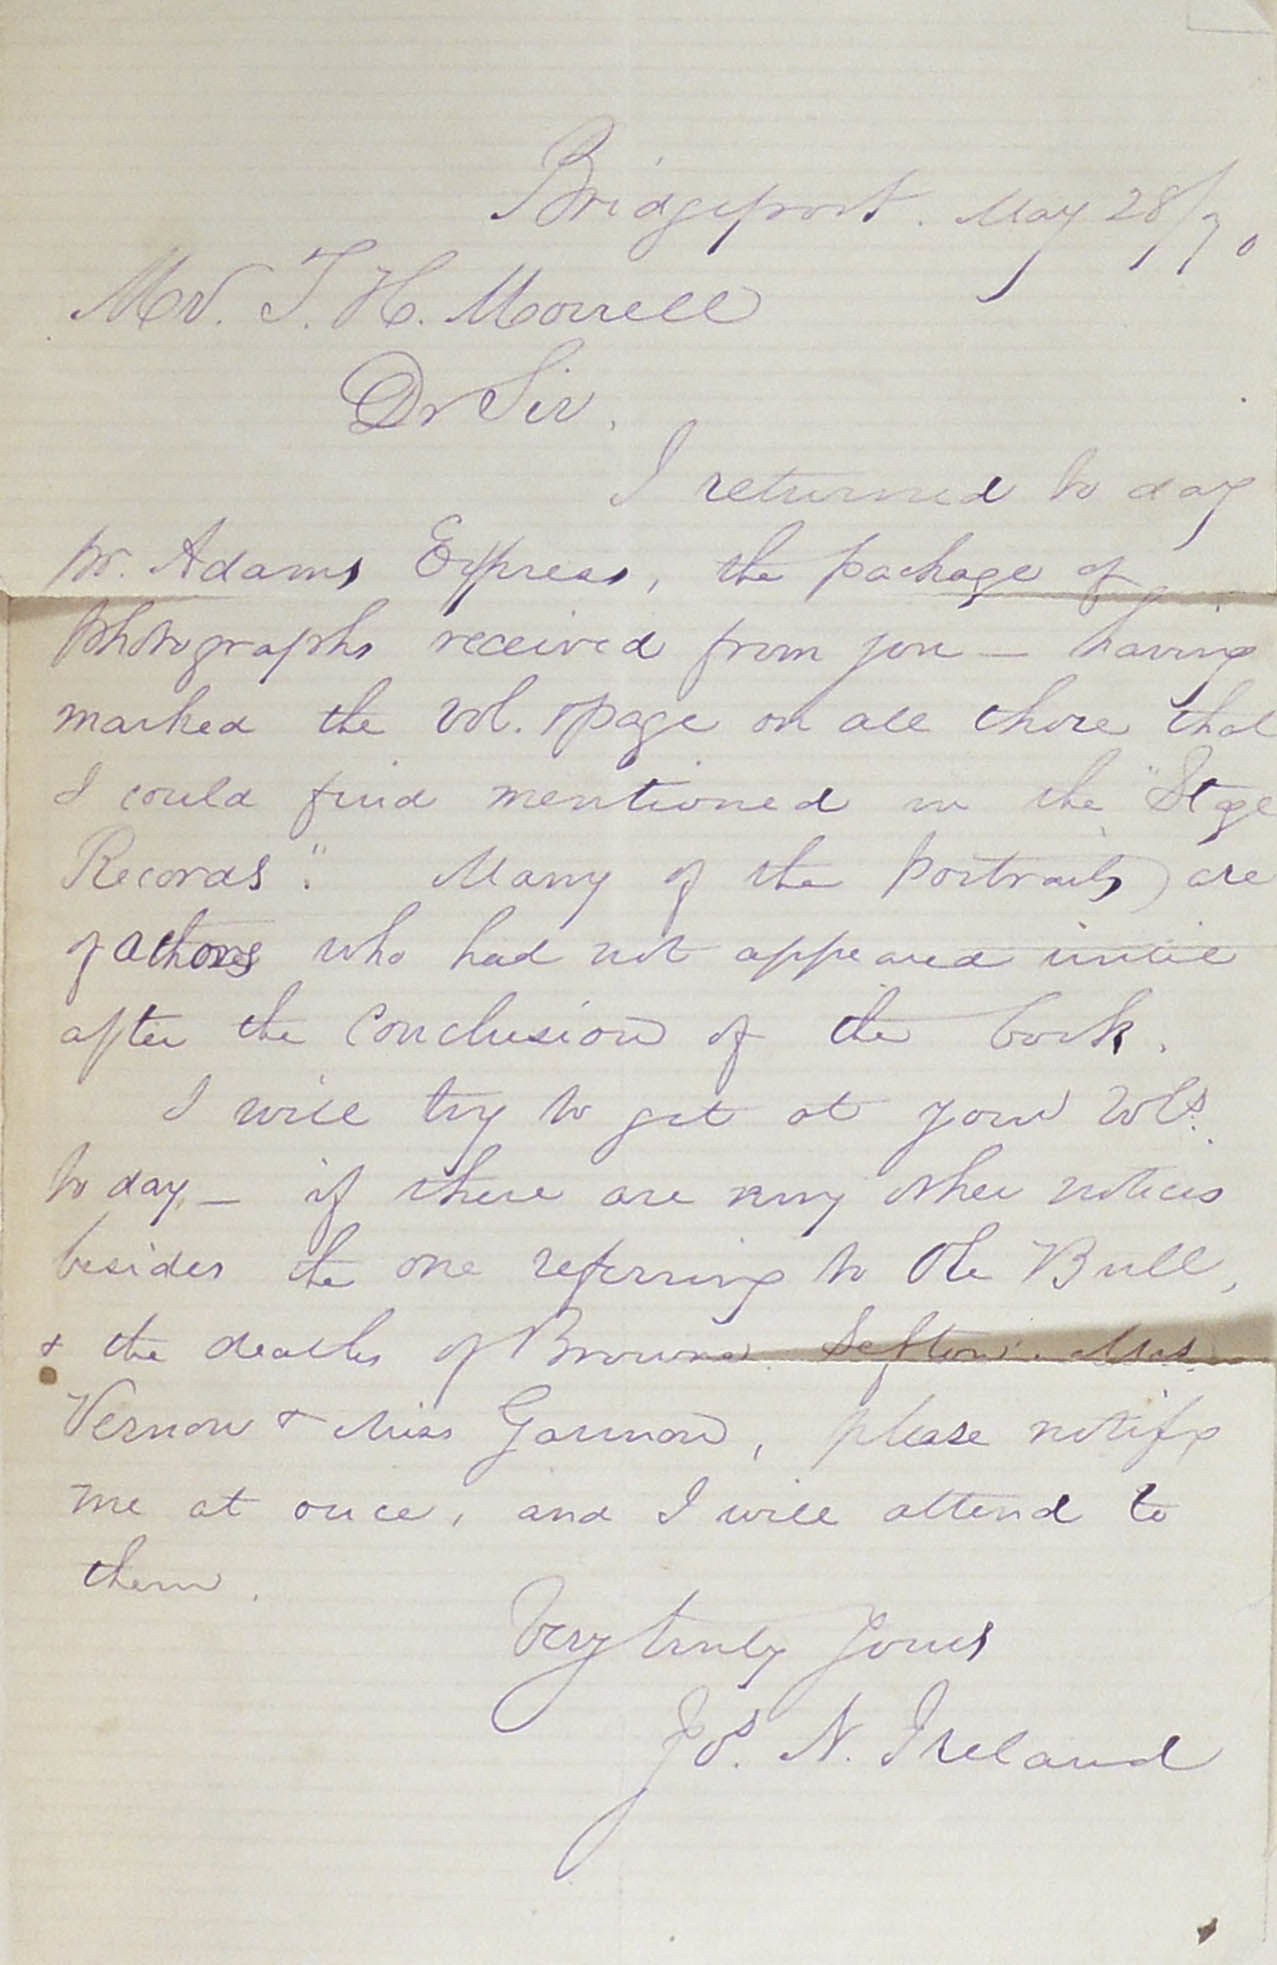 Bridgeport. May 28/70
Mr. T. H. Morrell
Dr Sir,
I returned to day
pr. Adams Express, the package of
photographs received from you — having
marked the vol. & page on all those that
I could find mentioned in the "Stage
Records". Many of the portraits are
of actors who had not appeared until
after the conclusion of the book.
I will try to get at your vols.
to day, — if there are any other notices
besides the one referring to Ole Bull,
& the deaths of Browne, Sefton, Mrs.
Vernon & Miss Gannon, please notify
me at once, and I will attend to
them.
Very truly yours
Jos. N. Ireland